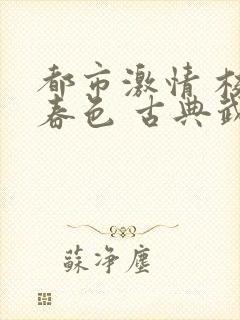 都市激情 校
春色 古典武
蘇净塵